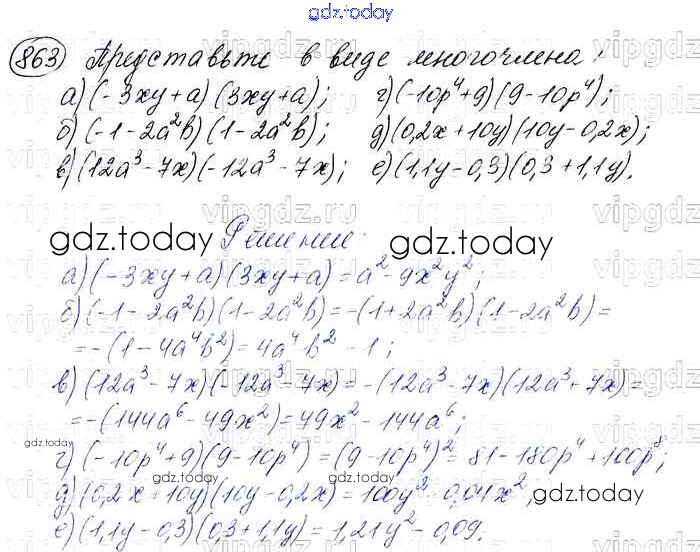 gdz.today
863 Представьте в виде многочлена:
а) (-3xy+a)(3xy+a); г) (-10p⁴+9)(9-10p⁴);
б) (-1-2a²b)(1-2a²b); д) (0,2x+10y)(10y-0,2x);
в) (12a³-7x)(-12a³-7x); е) (1,1y-0,3)(0,3+1,1y).
Решение:
gdz.today gdz.today
а) (-3xy+a)(3xy+a)=a²-9x²y²;
б) (-1-2a²b)(1-2a²b)=-(1+2a²b)(1-2a²b)=
=-(1-4a⁴b²)=4a⁴b²-1;
в) (12a³-7x)(-12a³-7x)=-(12a³-7x)(12a³+7x)=
=-(144a⁶-49x²)=49x²-144a⁶;
gdz.today gdz.today
г) (-10p⁴+9)(9-10p⁴)=(9-10p⁴)²=81-180p⁴+100p⁸;
д) (0,2x+10y)(10y-0,2x)=100y²-0,04x²,
gdz.today gdz.today
е) (1,1y-0,3)(0,3+1,1y)=1,21y²-0,09.